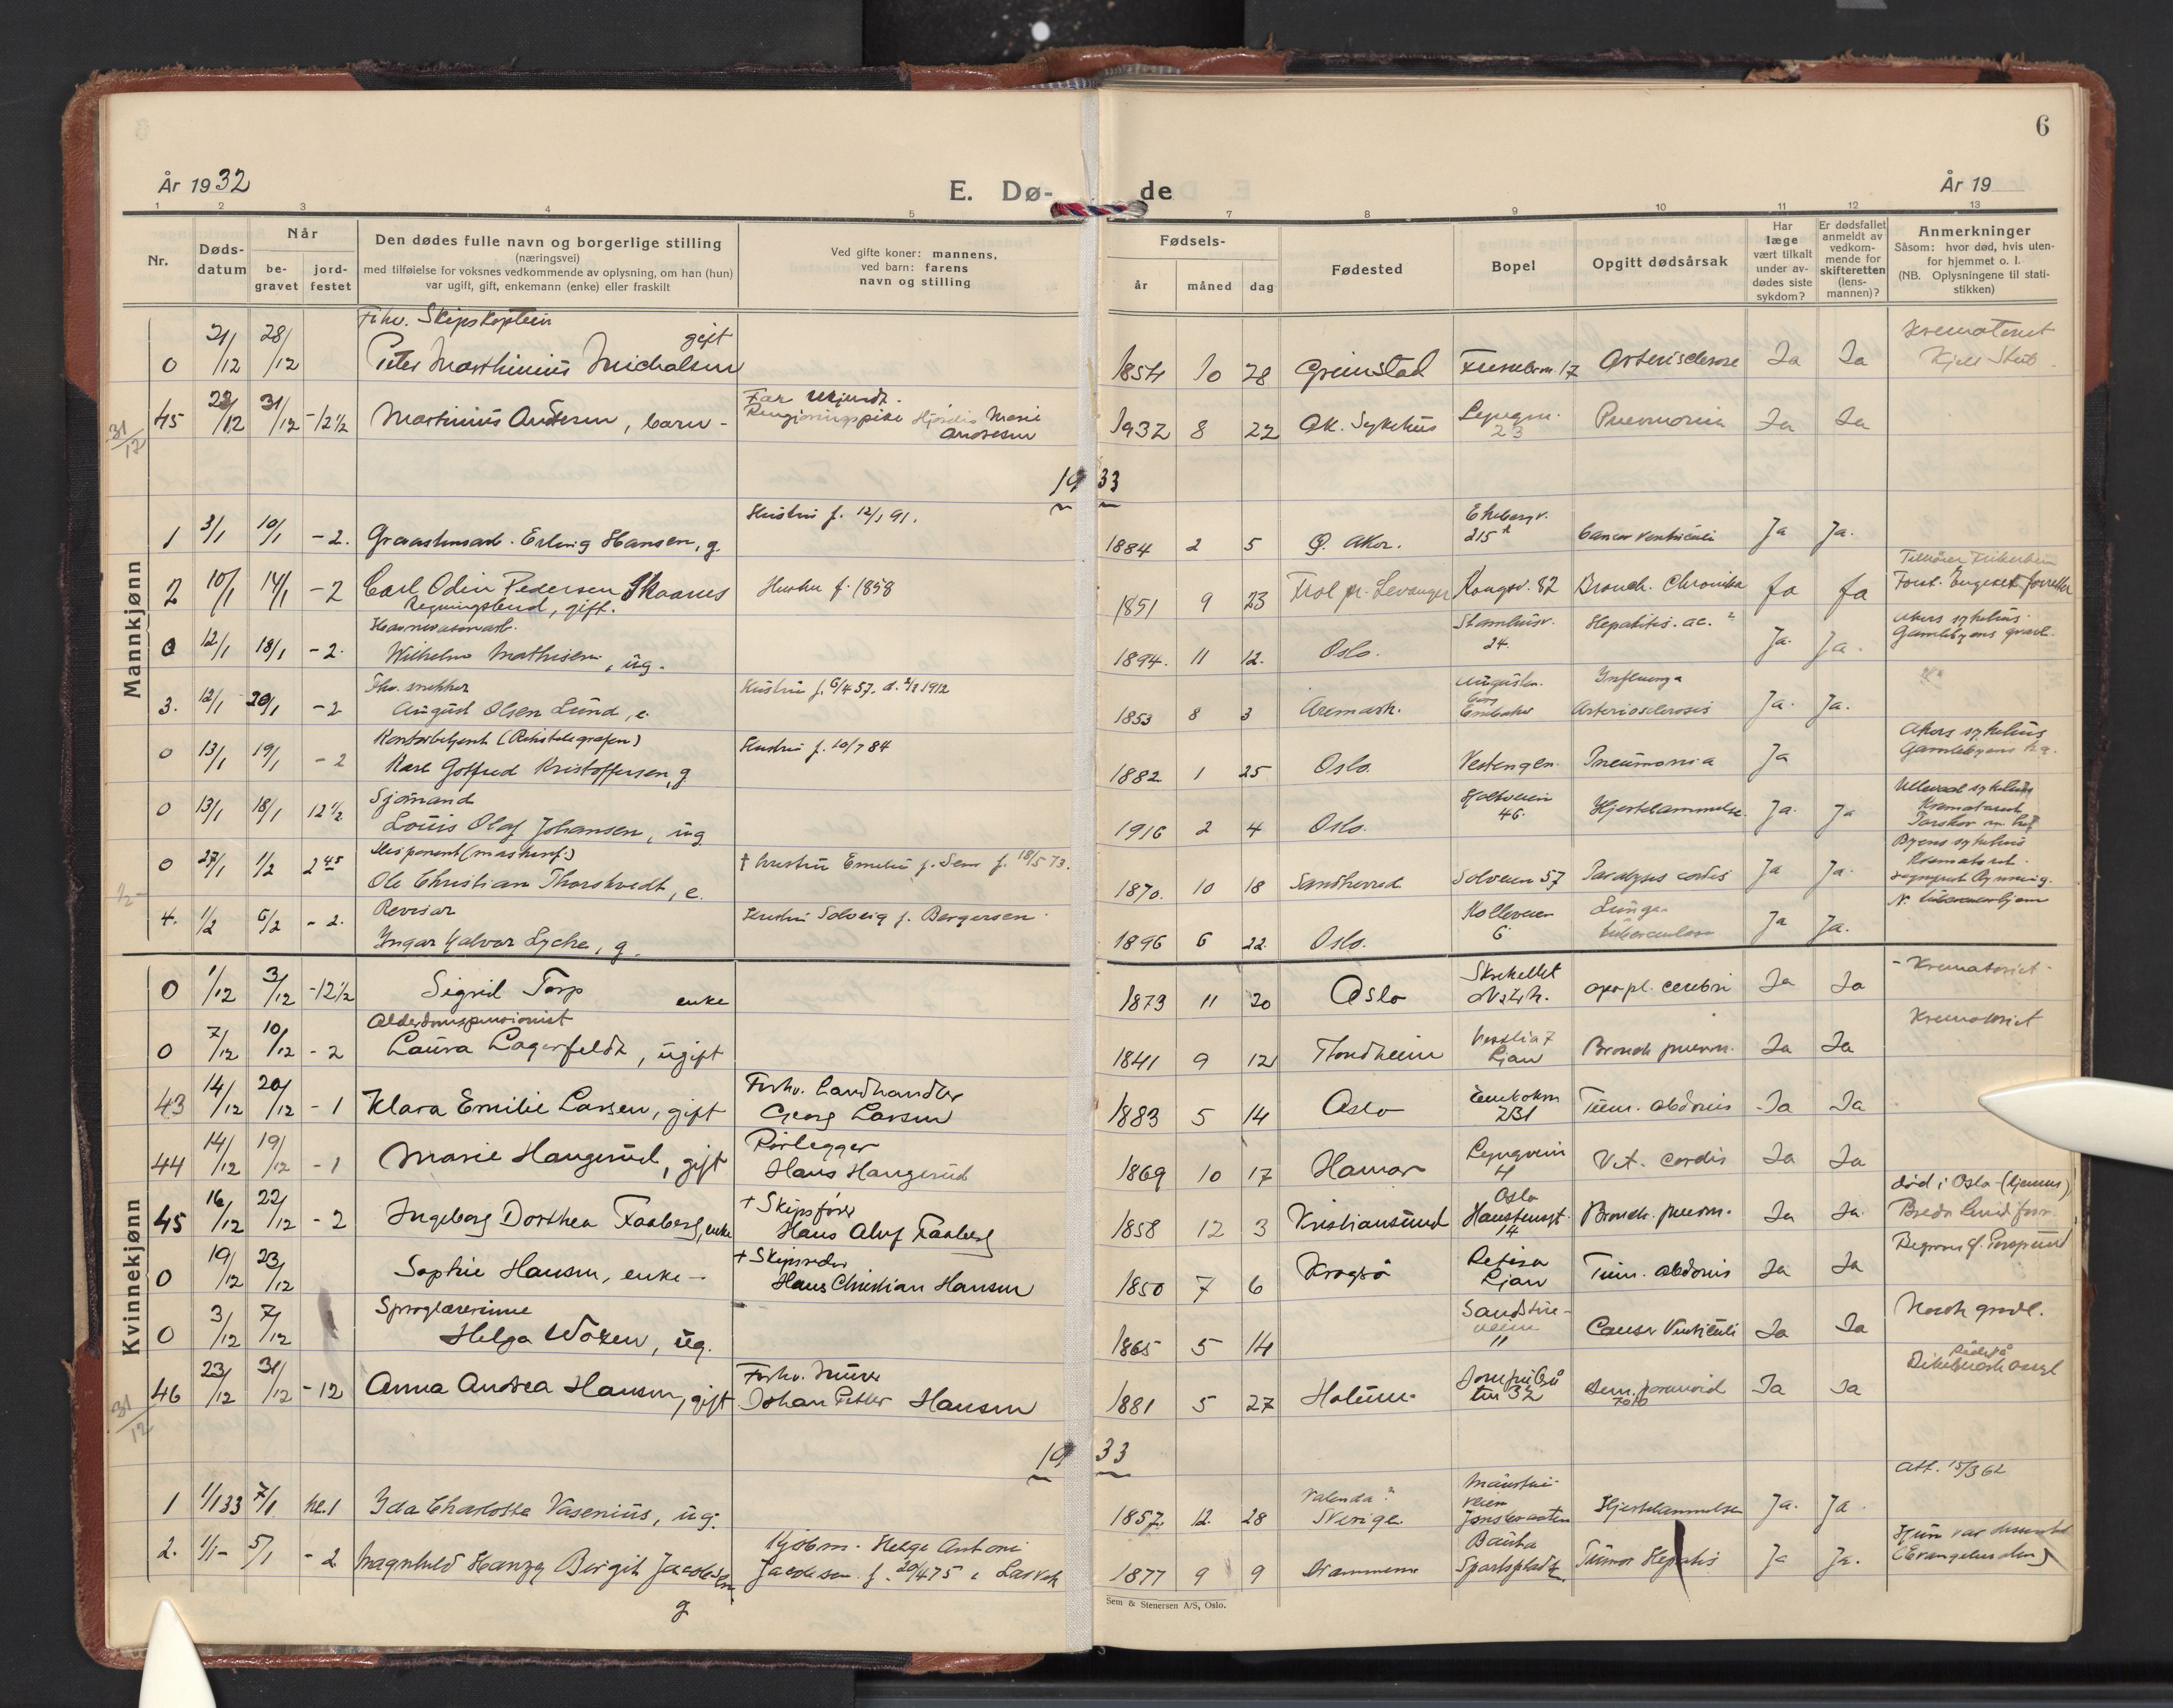 6
År 1932
E. Dø-
de
År 19
1 2 3 4 5 7 8 9 10 11 12 13
Nr.
Døds-
datum
Når
be-
gravet
jord-
festet
Den dødes fulle navn og borgerlige stilling
(næringsvei)
med tilføielse for voksnes vedkommende av oplysning, om han (hun)
var ugift, gift, enkemann (enke) eller fraskilt
Ved gifte koner: mannens,
ved barn: farens
navn og stilling
Fødsels-
år måned dag
Fødested
Bopel
Opgitt dødsårsak
Har
læge
vært tilkalt
under av-
dødes siste
sykdom?
Er dødsfallet
anmeldt av
vedkom-
mende for
skifteretten
(lens-
mannen)?
Anmerkninger
Såsom: hvor død, hvis uten-
for hjemmet o. l.
(NB. Oplysningene til stati-
stikken)
Mannkjønn
Fhv. Skipskaptein
gift
0 21/12 28/12 Peter Marthinius Michalsen 1854 10 28 Grimstad 17 Arterisclerose Ja Ja
Krematoriet
31/12
45 22/12 31/12 -12½ Martinius Andersen, barn - Far ukjendt.
Rengjøringspike Hjørdis Marie
Andersen 1932 8 22 Ak. Sykehus 23 Pneumonia Ja Ja
1933
Hustru f. 12/1 91.
1 3/1 10/1 -2. Erling Hansen, g. 1884 2 5 Ø. Aker. Ekebergv.
215 Cancer Ventriculi Ja Ja.
2 10/1 14/1 -2 Carl Odin Pedersen Skaanes
Regningsbud, gift. Hustru f. 1858 1851 9 23 pr. Levanger Kongsv. 82 Bronch. Chronika Ja Ja
0 12/1 18/1 -2. Wilhelm Mathisen, ug. 1894. 11 12. Oslo. 24. Hepatitis. ac. ? Ja. Ja.
Akers sykehus
Gamlebyens gravl.
3. 12/1 20/1 -2 Fhv. snekker
August Olsen Lund, e. Hustru f. 6/4 57. d. 2/2 1912 1853 8 3 Aremark. Influenza
Arteriosclerosis Ja. Ja.
0 13/1 19/1 -2 Kontorbetjent (Rikstelegrafen)
Karl Gotfred Kristoffersen, g Hustru f. 10/7 84 1882 1 25 Oslo. Vestengen. Pneumonia Ja
Akers sykehus
0 13/1 18/1 12½ Sjømand
Louis Olaf Johansen, ug 1916 2 4 Oslo. Holtveien
46. Hjertelammelse. Ja. Ja
Ullevaal sykehus
0 27/1 1/2 2 45 Disponent
Ole Christian Thorskvedt, e. † hustru Emelie f. Sem f. 18/5 73. 1870. 10 18 Sandherred Solveien 57 Paralysis cordis Ja Ja.
Byens sykehus
4. 1/2 6/2 -2. Revisor
Ingar Halvor Lyche, g. Hustru Solveig f. Bergersen 1896 6 22. Oslo. Kolleveien
6. Lunge-
tuberculose Ja Ja.
Kvinnekjønn
0 1/12 3/12 -12½ Sigrid Torp enke 1873 11 20 Oslo apopl. cerebri Ja Ja
- Krematoriet -
Alderdomspensionist
0 7/12 10/12 -2 Laura Lagerfeldt, ugift 1841 9 12 Trondheim Vestlia 7
Ljan Bronch. pneum. Ja Ja
Krematoriet
43 14/12 20/12 -1 Klara Emilie Larsen, gift Forhv. Landhandler
Georg Larsen 1883 5 14 Oslo 231 Tum. abdomis Ja Ja
44 14/12 19/12 -1 Marie Haugerud, gift Rørlegger
Hans Haugerud 1869 10 17 Hamar 4 Vit. cordis Ja Ja
45 16/12 22/12 -2 Ingeborg Dorthea Faaberg, enke + Skipsfører
Hans Aluf Faaberg 1858 12 3 Kristiansund Oslo
14 Bronch. pneum. Ja Ja
død i Oslo (hjemme)
0 19/12 23/12 Sophie Hansen, enke - + Skipsreder
Hans Christian Hansen 1850 7 6 Kragerø
Ljan Tum. abdomis Ja Ja
Sproglærerinne
0 3/12 7/12 Helga Woxen, ug. 1865 5 14 11 Cancer Ventriculi Ja Ja
31/12
46 23/12 31/12 -12 Anna Andrea Hansen, gift Forhv. Murer
Johan Petter Hansen 1881 5 27 32 Dem. paranoid Ja Ja
1933
Att. 15/3 62
1 1/1 33 7/1 kl. 1 Ida Charlotte Vasenius, ug. 1857. 12. 28 Sverige Hjertelammelse Ja. Ja.
2. 1/1- 5/1 -2 Magnhild Hanzy Birgit Jacobsen
g Kjøbm. Helge Antoni
Jacobsen f. 20/4 75 i Larvik 1877 9 9 Drammen Tumor Hepatis Ja Ja.
Sem & Stenersen A/S, Oslo.